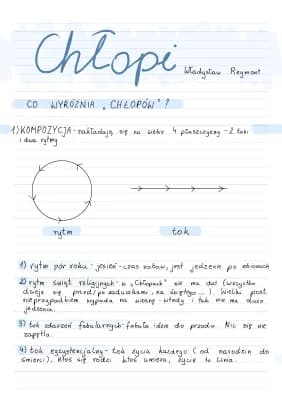 Chłopi
Władysław Reymont
CO WYRÓŻNIA „CHŁOPÓW"?
1) KOMPOZYCJA - nakładają się na siebie 4 płaszczyzny - 2 toki
i dwa rytmy
rytm
tok
1) rytm pór roku - jesień - czas zabaw, jest jedzenie po zbiorach
2) rytm świąt religijnych - w „Chłopach" nie ma dat (wszystko
dzieje się przed/po zaduszkami, na świętego...). Wielki post
nieprzypadkiem wypada na wiosnę - wtedy i tak nie ma dużo
jedzenia.
3) tok zdarzeń fabularnych - fabuła idzie do przodu. Nic się nie
zapętla.
4) tok egzystencjalny - tok życia każdego (od narodzin do
śmierci). Ktoś się rodzi, ktoś umiera, życie to linia.